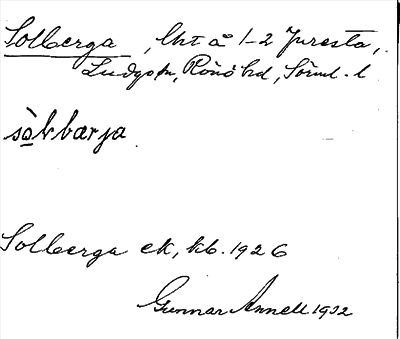 Solberga, lht å 1-2 Juresta,
Ludgo sn, Rönö hd, Sörml. l
sòlbarja
Solberga ek, kb. 1926
Gunnar Annell 1932